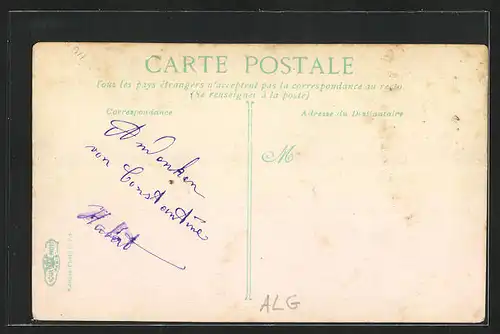 CARTE POSTALE
Tous les pays étrangers n'acceptent pas la correspondance au recto
(Se renseigner à la poste)
Correspondance
Adresse du Destinataire
M
Andenken
von Constantine
ALG